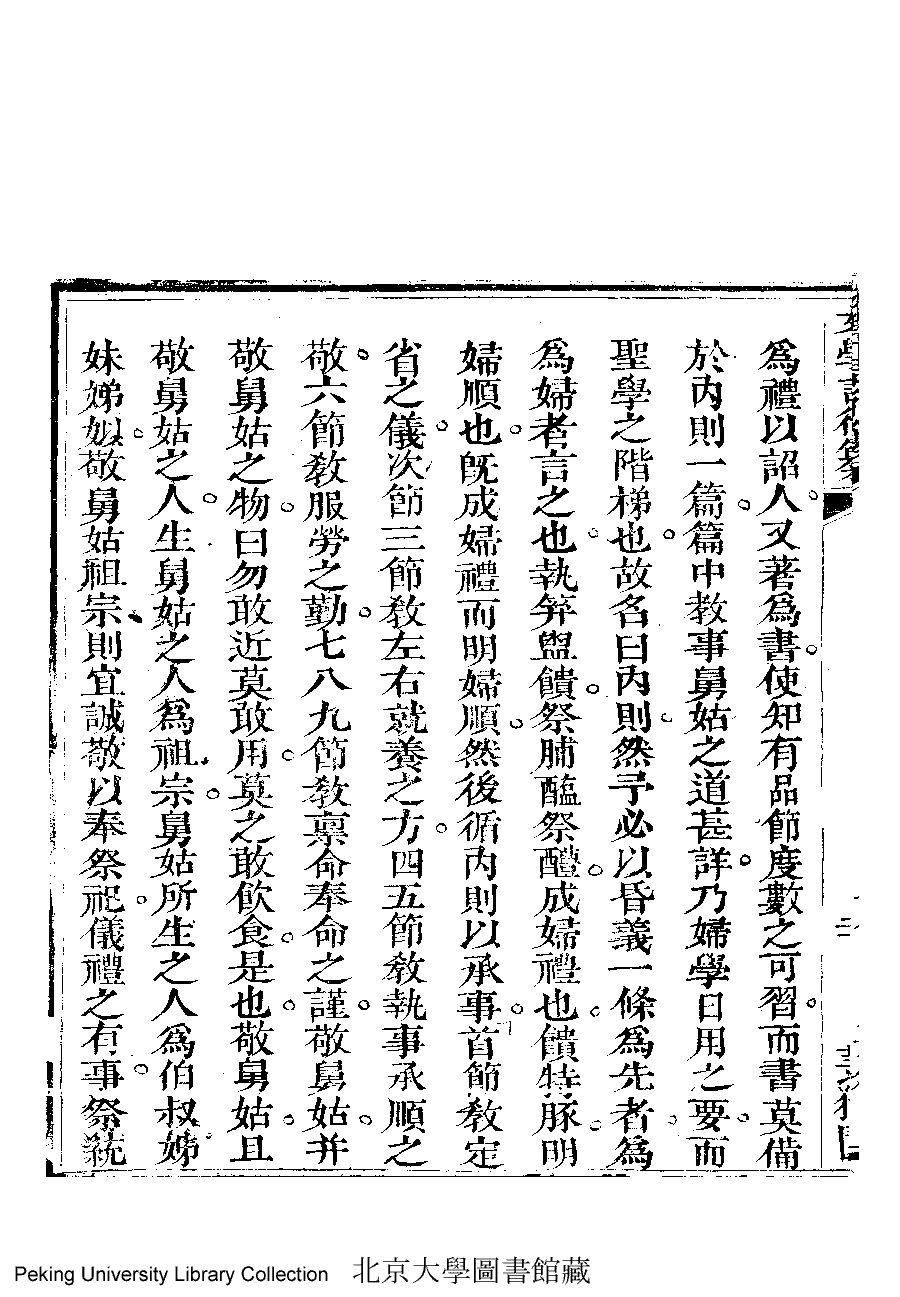 為禮以詔人。又著為書。使知有品節度數之可習。而書莫備
於內則一篇。篇中教事舅姑之道甚詳。乃婦學日用之要。而
聖學之階梯也。故名曰內則。然予必以昏義一條為先者。為
為婦者言之也。執笄盥饋。祭脯醢祭醴。成婦禮也。饋特豚。明
婦順也。旣成婦禮而明婦順。然後循內則以承事。首節教定
省之儀。次節三節教左右就養之方。四五節教執事承順之
敬。六節教服勞之勤。七八九節教禀命奉命之謹。敬舅姑。并
敬舅姑之物。曰勿敢近莫敢用。莫之敢飲食。是也。敬舅姑。且
敬舅姑之人。生舅姑之人為祖宗。舅姑所生之人為伯叔姊
妹娣姒。敬舅姑祖宗則宜誠敬以奉祭祀。儀禮之有事。祭統
Peking University Library Collection 北京大學圖書館藏